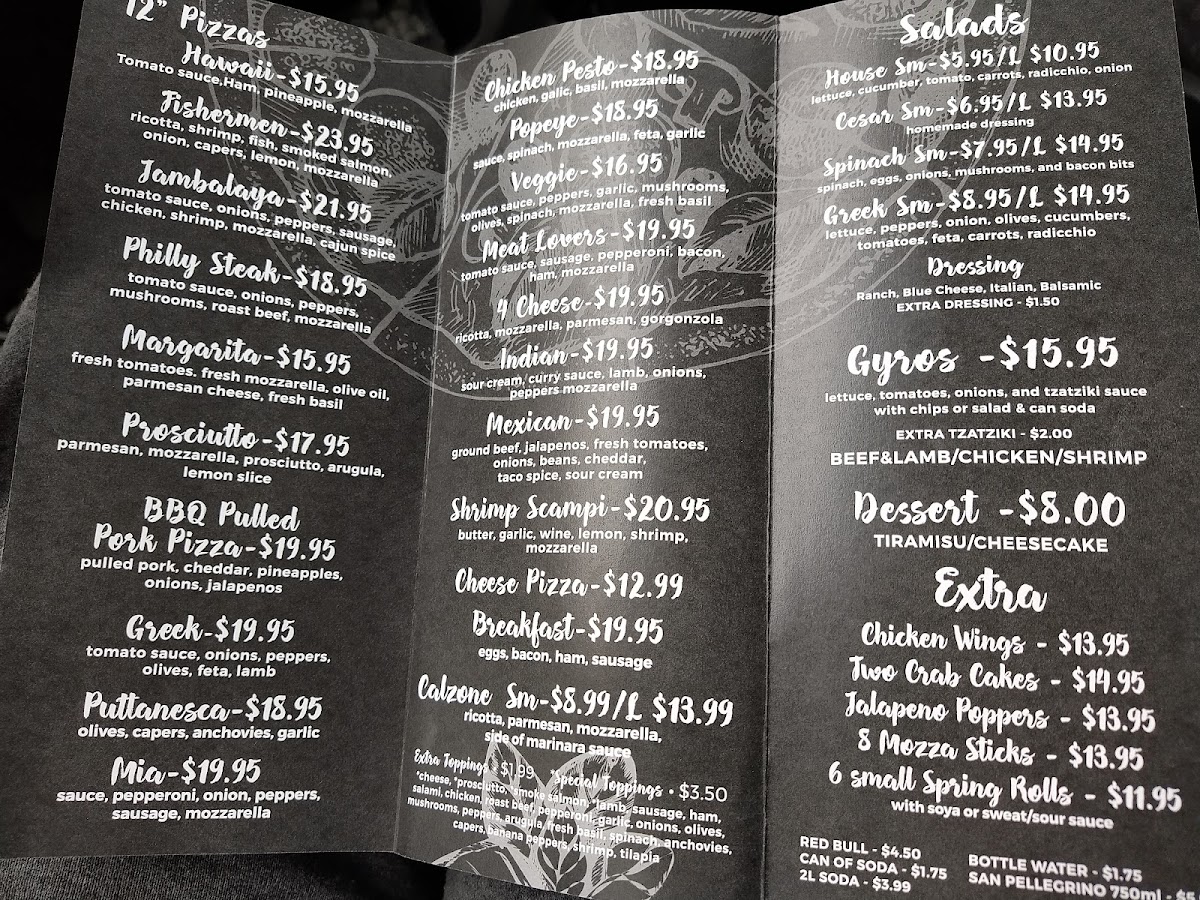 12" Pizzas
Hawaii-$15.95
Tomato sauce,Ham, pineapple, mozzarella
Fishermen-$23.95
ricotta, shrimp, fish, smoked salmon,
onion, capers, lemon, mozzarella
Jambalaya-$21.95
tomato sauce, onions, peppers, sausage,
chicken, shrimp, mozzarella, cajun spice
Philly Steak-$18.95
tomato sauce, onions, peppers,
mushrooms, roast beef, mozzarella
Margarita-$15.95
fresh tomatoes. fresh mozzarella, olive oil,
parmesan cheese, fresh basil
Prosciutto-$17.95
parmesan, mozzarella, prosciutto, arugula,
lemon slice
BBQ Pulled
Pork Pizza-$19.95
pulled pork, cheddar, pineapples,
onions, jalapenos
Greek-$19.95
tomato sauce, onions, peppers,
olives, feta, lamb
Puttanesca-$18.95
olives, capers, anchovies, garlic
Mia-$19.95
sauce, pepperoni, onion, peppers,
sausage, mozzarella
Chicken Pesto-$18.95
chicken, garlic, basil, mozzarella
Popeye-$18.95
sauce, spinach, mozzarella, feta, garlic
Veggie-$16.95
tomato sauce, peppers, garlic, mushrooms,
olives, spinach, mozzarella, fresh basil
Meat Lovers-$19.95
tomato sauce, sausage, pepperoni, bacon,
ham, mozzarella
4 Cheese-$19.95
ricotta, mozzarella, parmesan, gorgonzola
Indian-$19.95
sour cream, curry sauce, lamb, onions,
peppers mozzarella
Mexican-$19.95
ground beef, jalapenos, fresh tomatoes,
onions, beans, cheddar,
taco spice, sour cream
Shrimp Scampi-$20.95
butter, garlic, wine, lemon, shrimp,
mozzarella
Cheese Pizza-$12.99
Breakfast-$19.95
eggs, bacon, ham, sausage
Calzone Sm-$8.99/L $13.99
ricotta, parmesan, mozzarella,
side of marinara sauce
Extra Toppings • $1.99 *Special Toppings • $3.50
*cheese, *prosciutto, *smoke salmon, *lamb, sausage, ham,
salami, chicken, roast beef, pepperoni, garlic, onions, olives,
mushrooms, peppers, arugula, fresh basil, spinach, anchovies,
capers, banana peppers, shrimp, tilapia
Salads
House Sm-$5.95/L $10.95
lettuce, cucumber, tomato, carrots, radicchio, onion
Cesar Sm-$6.95/L $13.95
homemade dressing
Spinach Sm-$7.95/L $14.95
spinach, eggs, onions, mushrooms, and bacon bits
Greek Sm-$8.95/L $14.95
lettuce, peppers, onion, olives, cucumbers,
tomatoes, feta, carrots, radicchio
Dressing
Ranch, Blue Cheese, Italian, Balsamic
EXTRA DRESSING - $1.50
Gyros -$15.95
lettuce, tomatoes, onions, and tzatziki sauce
with chips or salad & can soda
EXTRA TZATZIKI - $2.00
BEEF&LAMB/CHICKEN/SHRIMP
Dessert -$8.00
TIRAMISU/CHEESECAKE
Extra
Chicken Wings - $13.95
Two Crab Cakes - $14.95
Jalapeno Poppers - $13.95
8 Mozza Sticks - $13.95
6 small Spring Rolls - $11.95
with soya or sweat/sour sauce
RED BULL - $4.50
CAN OF SODA - $1.75
2L SODA - $3.99
BOTTLE WATER - $1.75
SAN PELLEGRINO 750ml - $5